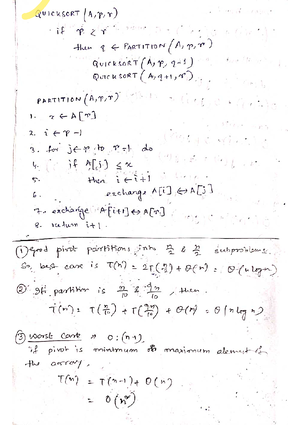 QUICKSORT (A, p, r)
if p < r
then q ← PARTITION (A, p, r)
QUICKSORT (A, p, q-1)
QUICKSORT (A, q+1, r)
PARTITION (A, p, r)
1. x ← A[r]
2. i ← p-1
3. for j ← p to r-1 do
4. if A[j] ≤ x
5. then i ← i+1
6. exchange A[i] ↔ A[j]
7. exchange A[i+1] ↔ A[r]
8. return i+1
① Good pivot partitions into n/2 & n/2 subproblems.
So best case is T(n) = 2T(n/2) + Θ(n) = Θ(n log n)
② If partition is n/10 & 9n/10, then
T(n) = T(n/10) + T(9n/10) + Θ(n) = Θ(n log n)
③ worst case 0:(n-1)
if pivot is minimum or maximum element in
the array,
T(n) = T(n-1) + O(n)
= O(n²)